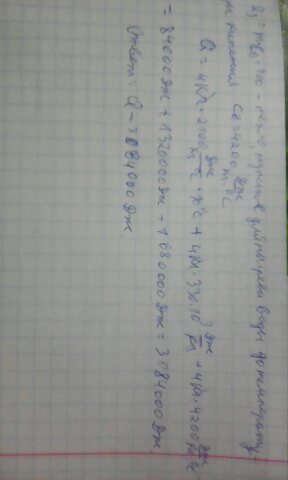 Q₃ = mсв · 100 - тепло, нужное для нагрева воды до температу-
ры кипения св = 4200 Дж/кг°С
Q = 4кг · 2100 Дж/кг°С · 10°С + 4кг · 330·10³ Дж/кг + 4кг · 4200 Дж/кг°С
= 84000 Дж + 1320000 Дж + 1680000 Дж = 3084000 Дж.
Ответ: Q = 3084000 Дж.